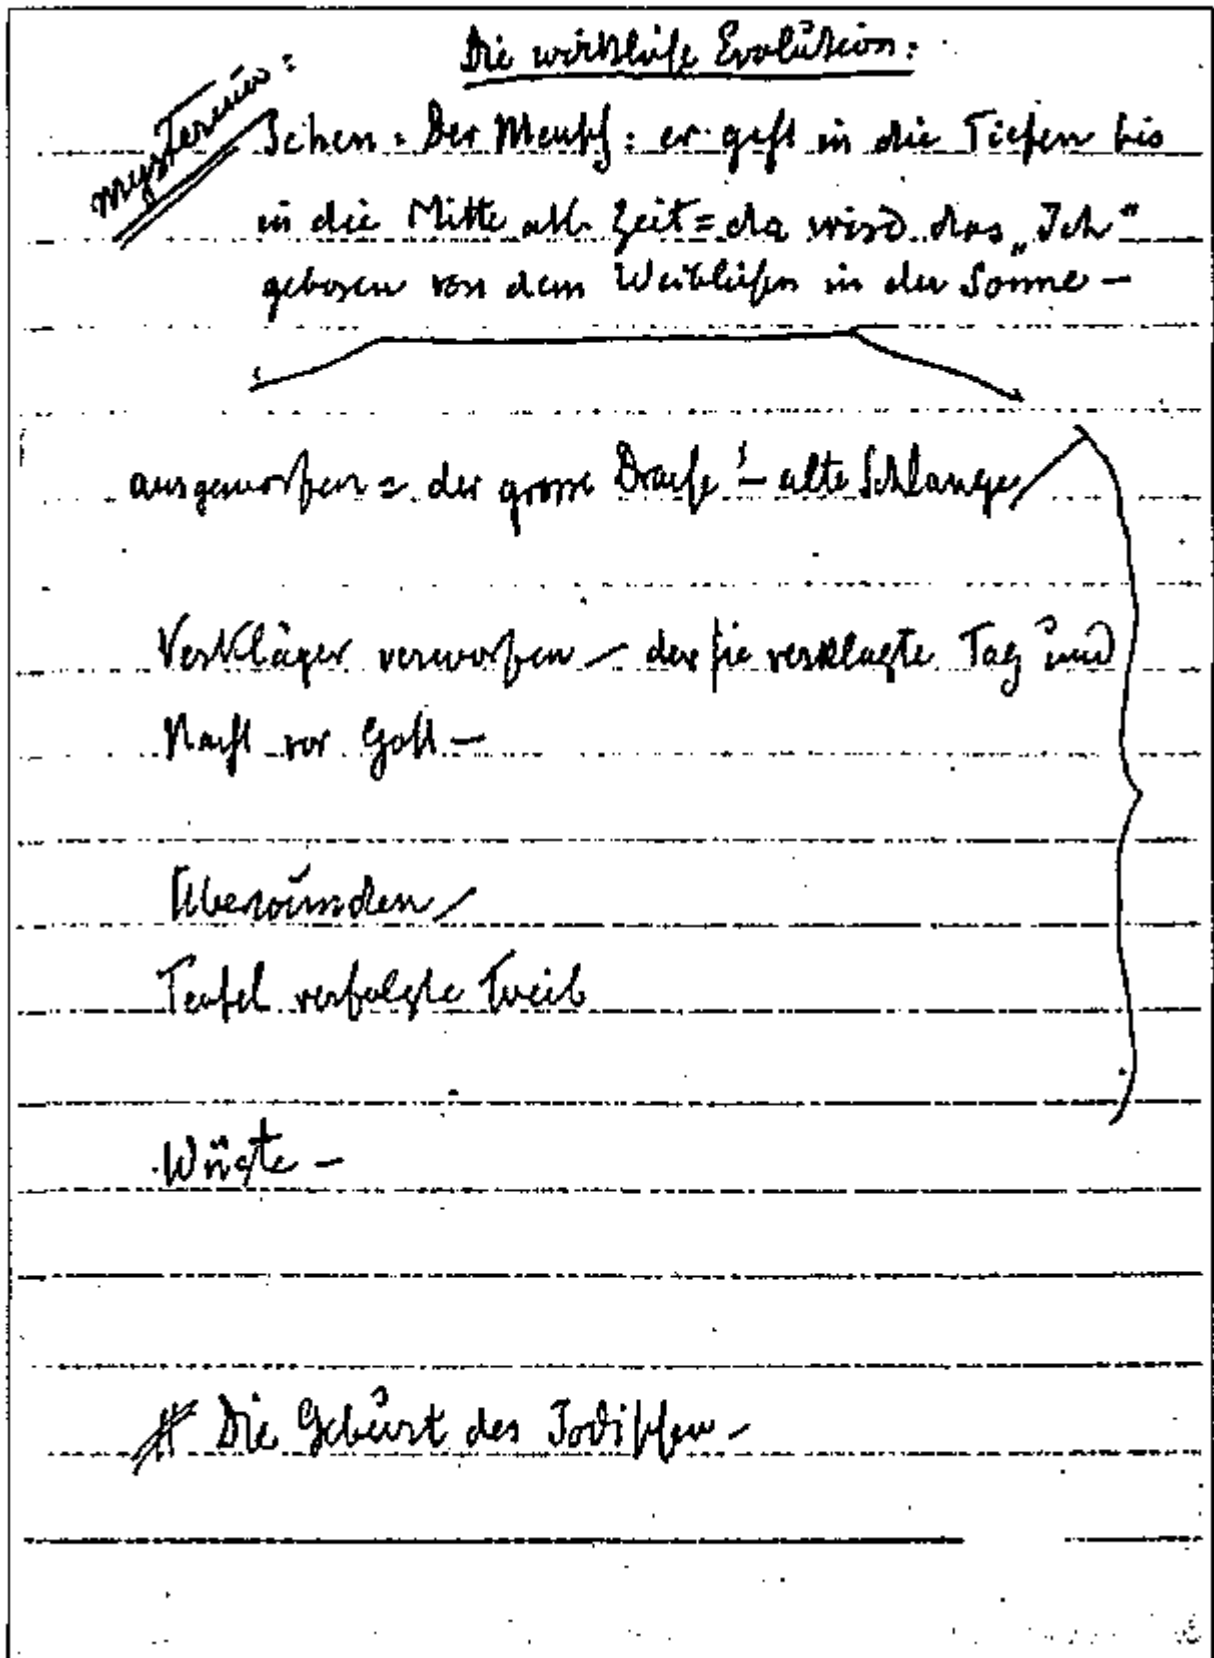 Die wirkliche Evolution:
Mysterium =
Der Mensch: er geht in die Tiefen bis
in die Mitte all. Zeit = da wird das "Ich"
geboren von dem Weiblichen in der Sonne –
ausgeworfen = der grosse Drache! – alte Schlange
Verkläger verworfen – der sie verklagte Tag und
Nacht vor Gott –
Überwunden
Teufel verfolgte Weib
Wüste –
Die Geburt des Irdischen –